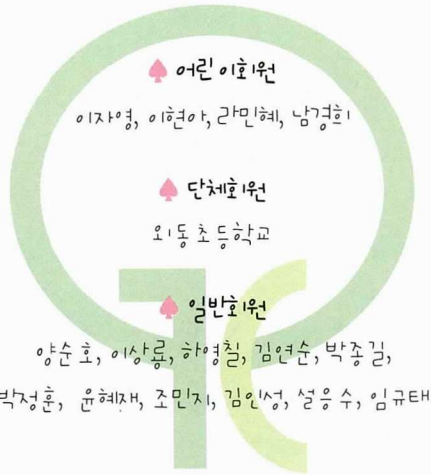 ♠ 어린이회원
이자영, 이현아, 라민혜, 남경희
♠ 단체회원
외동초등학교
♠ 일반회원
양순호, 이상룡, 하영칠, 김연순, 박종길,
박정훈, 윤혜재, 조민지, 김인성, 설응수, 임규태